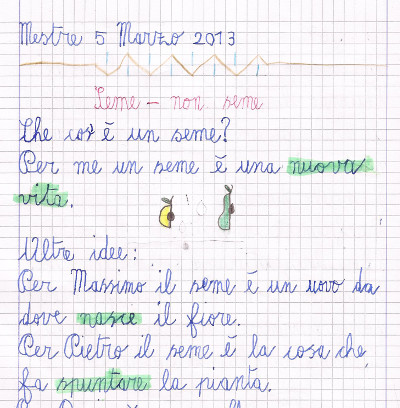 Mestre 5 Marzo 2013
Seme - non seme
Che cos'è un seme?
Per me un seme è una nuova
vita.
Altre idee:
Per Massimo il seme è un uovo da
dove nasce il fiore.
Per Pietro il seme è la cosa che
fa spuntare la pianta.